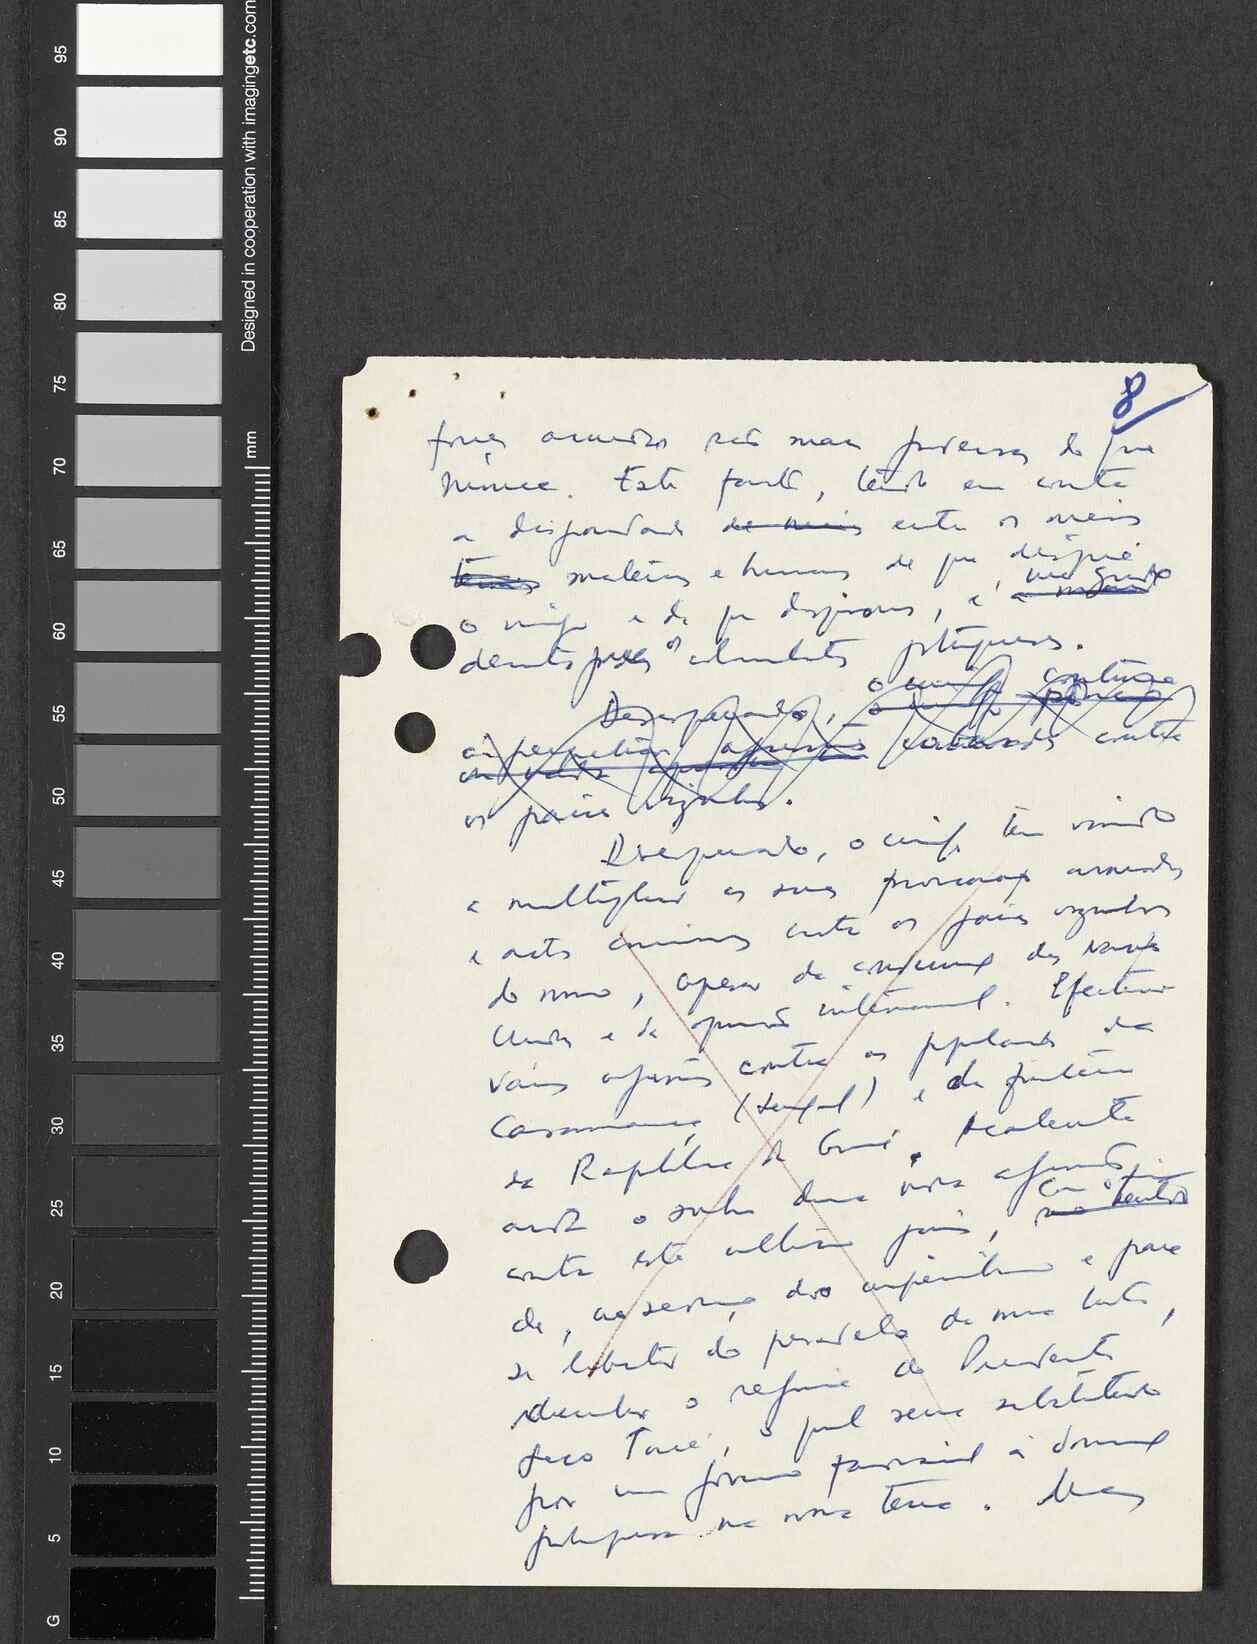 8
forças armadas são mais poderosas do que
nunca. Este facto, tendo em conta
a disparidade de meios entre os meios
materiais e humanos de que dispõe
o inimigo e de que dispomos, é
para os colonialistas portugueses.
Desesperado, o inimigo continua
contra
os países vizinhos.
Desesperado, o inimigo tem vindo
a multiplicar as suas provocações armadas
e actos criminosos contra os países vizinhos
do nosso, apesar da condenação das Nações
Unidas e da opinião internacional. Efectuou
várias agressões contra as populações da
Casamance (Senegal) e da fronteira
da República da Guiné. Acalenta
ainda o sonho duma nova agressão
contra este último país, com o fim
de, ao serviço do imperialismo e para
se libertar do pesadelo da nossa luta,
derrubar o regime do Presidente
Seco Touré, o qual seria substituído
por um governo favorável à dominação
portuguesa na nossa terra. Mas
95
90
85
80
75
70
65
60
55
50
45
40
35
30
25
20
15
10
5
G
mm
Designed in cooperation with imagingetc.com